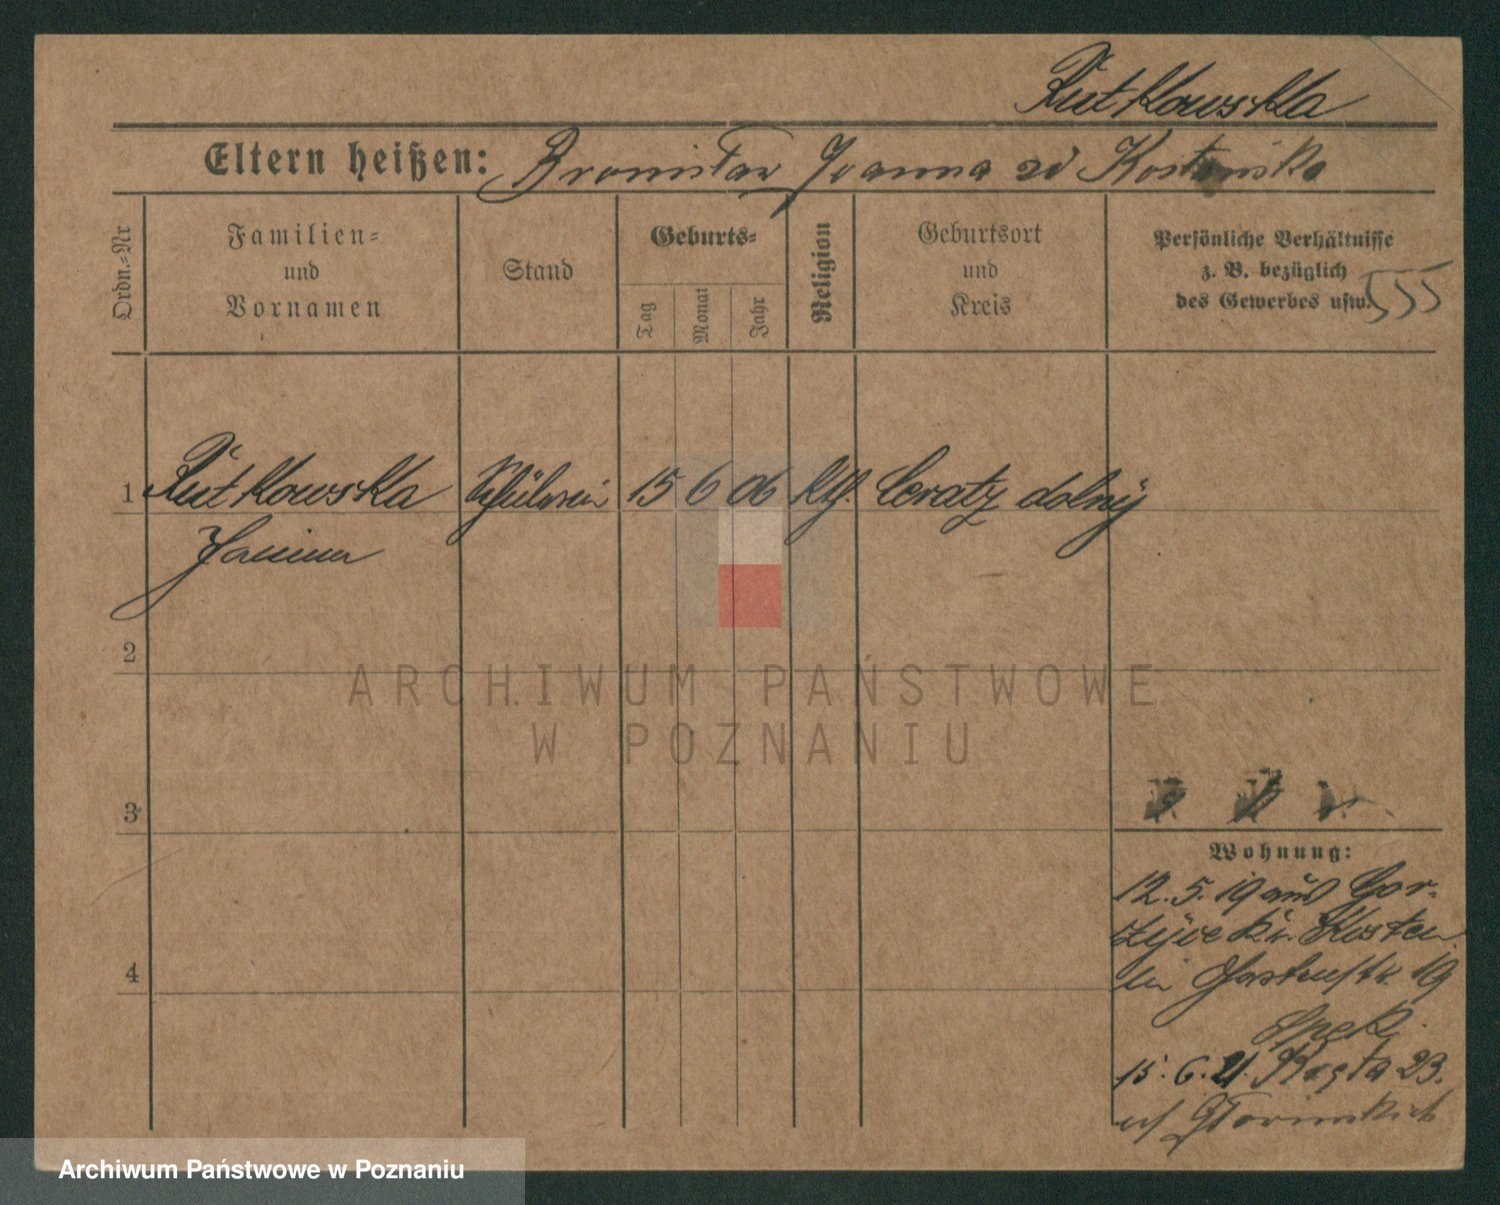 Rutkowska
Eltern heißen: Bronisław Joanna zd Kostańska
Ordn.-Nr
Familien-
und
Vornamen
Stand
Geburts-
Tag
Monat
Jahr
Religion
Geburtsort
und
Kreis
Persönliche Verhältnisse
z. B. bezüglich
des Gewerbes usw.
555
1 Rutkowska Schülerin 15 6 06 kth. Ceratz dolny
Janina
2
ARCHIWUM PAŃSTWOWE
W POZNANIU
3
Wohnung:
12. 5. 19 aus Gor-
zyce Kr. Kosten
in 19
15. 6. 21. 23.
4
Archiwum Państwowe w Poznaniu